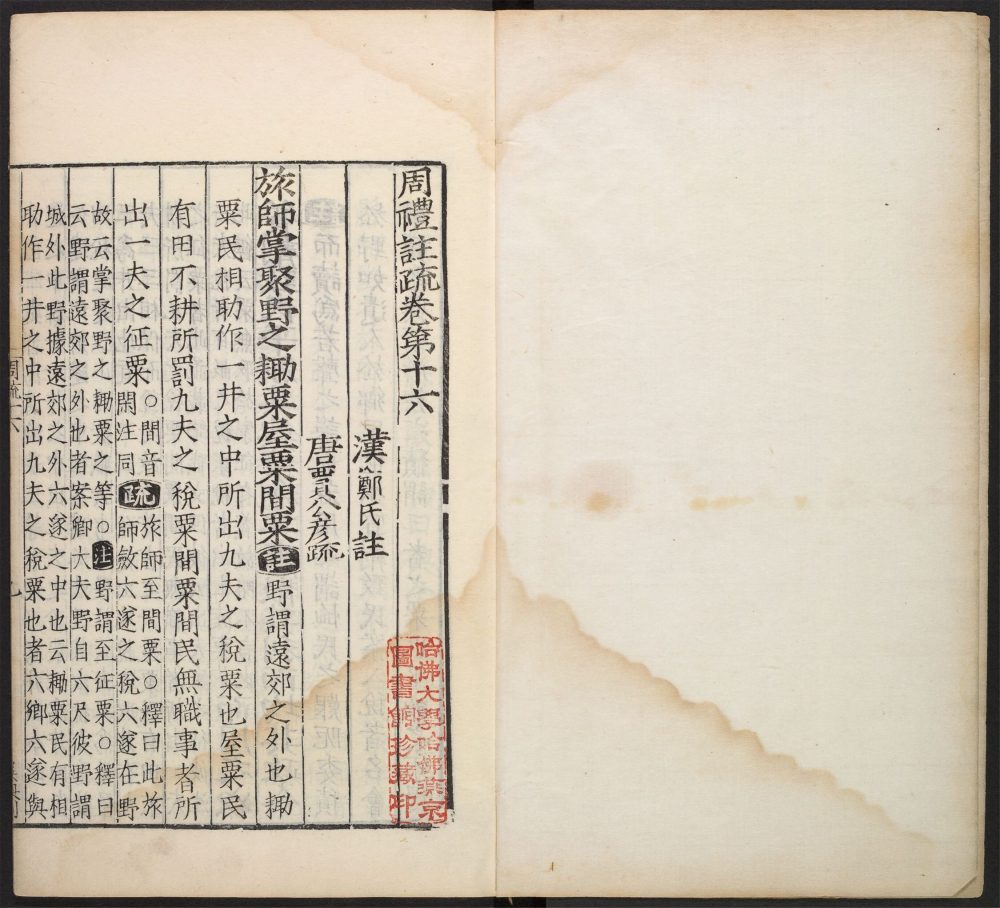 周禮註疏卷第十六
漢鄭氏註
唐賈公彦疏
旅師掌聚野之耡粟屋粟閒粟註野謂遠郊之外也耡
粟民相助作一井之中所出九夫之稅粟也屋粟民
有田不耕所罰九夫之稅粟閒粟閒民無職事者所
出一夫之征粟○閒音
閑注同疏旅師至閒粟○釋曰此旅
師斂六遂之稅六遂在野
故云掌聚野之耡粟之等○注野謂至征粟○釋曰
云野謂遠郊之外也者案鄉大夫野自六尺彼野謂
城外此野據遠郊之外六遂之中也云耡粟民有相
助作一井之中所出九夫之稅粟也者六鄉六遂與
周疏十六
哈佛大學哈佛燕京
圖書館珍藏印